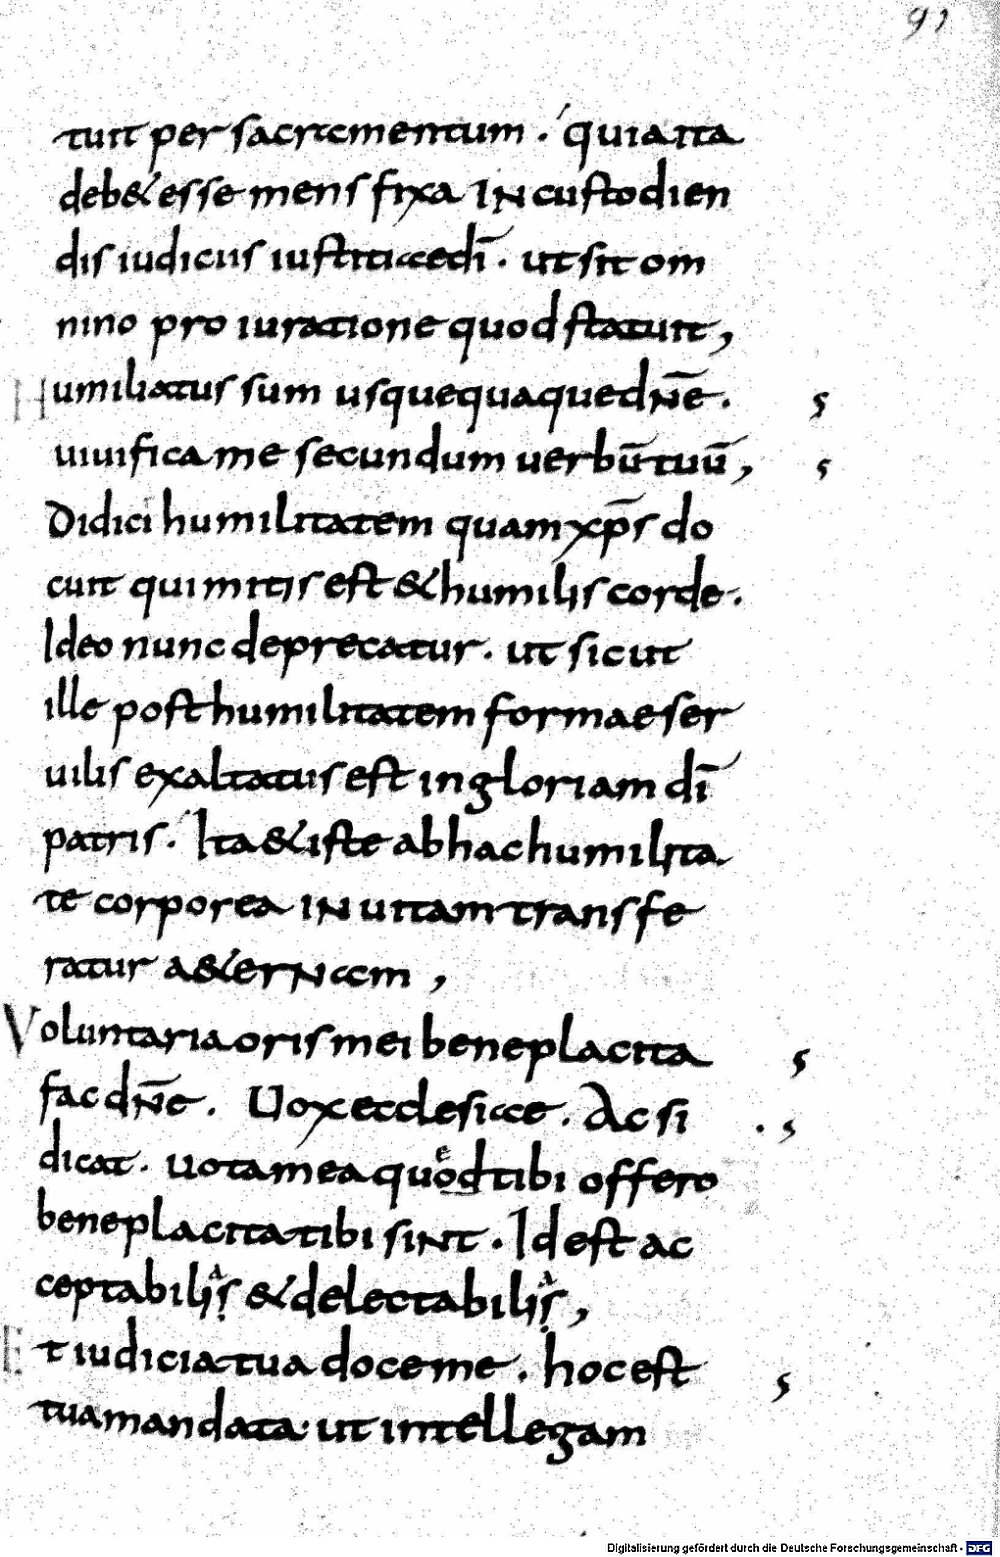 91
tuit per sacramentum . quia ita
deb& esse mens fixa IN custodien
dis iudiciis iustitiae dī . ut sit om
nino pro iuratione quod statuit,
Humiliatus sum usquequaque dn̄e .
uiuifica me secundum uerbū tuū,
Didici humilitatem quam xp̄s do
cuit qui mitis est & humilis corde .
Ideo nunc deprecatur . ut sicut
ille post humilitatem formae ser
uilis exaltatus est in gloriam dī
patris . Ita & iste ab hac humilita
te corporea IN uitam transfe
ratur a&erNam,
Voluntaria oris mei beneplacita
fac dn̄e . Uox ecclesiae . Ac si
dicat . uota mea quęod tibi offero
beneplacita tibi siNt . Id est ac
ceptabilias & delectabilias,
Et iudicia tua doce me . hoc est
tua mandata ut intellegam
Digitalisierung gefördert durch die Deutsche Forschungsgemeinschaft - DFG